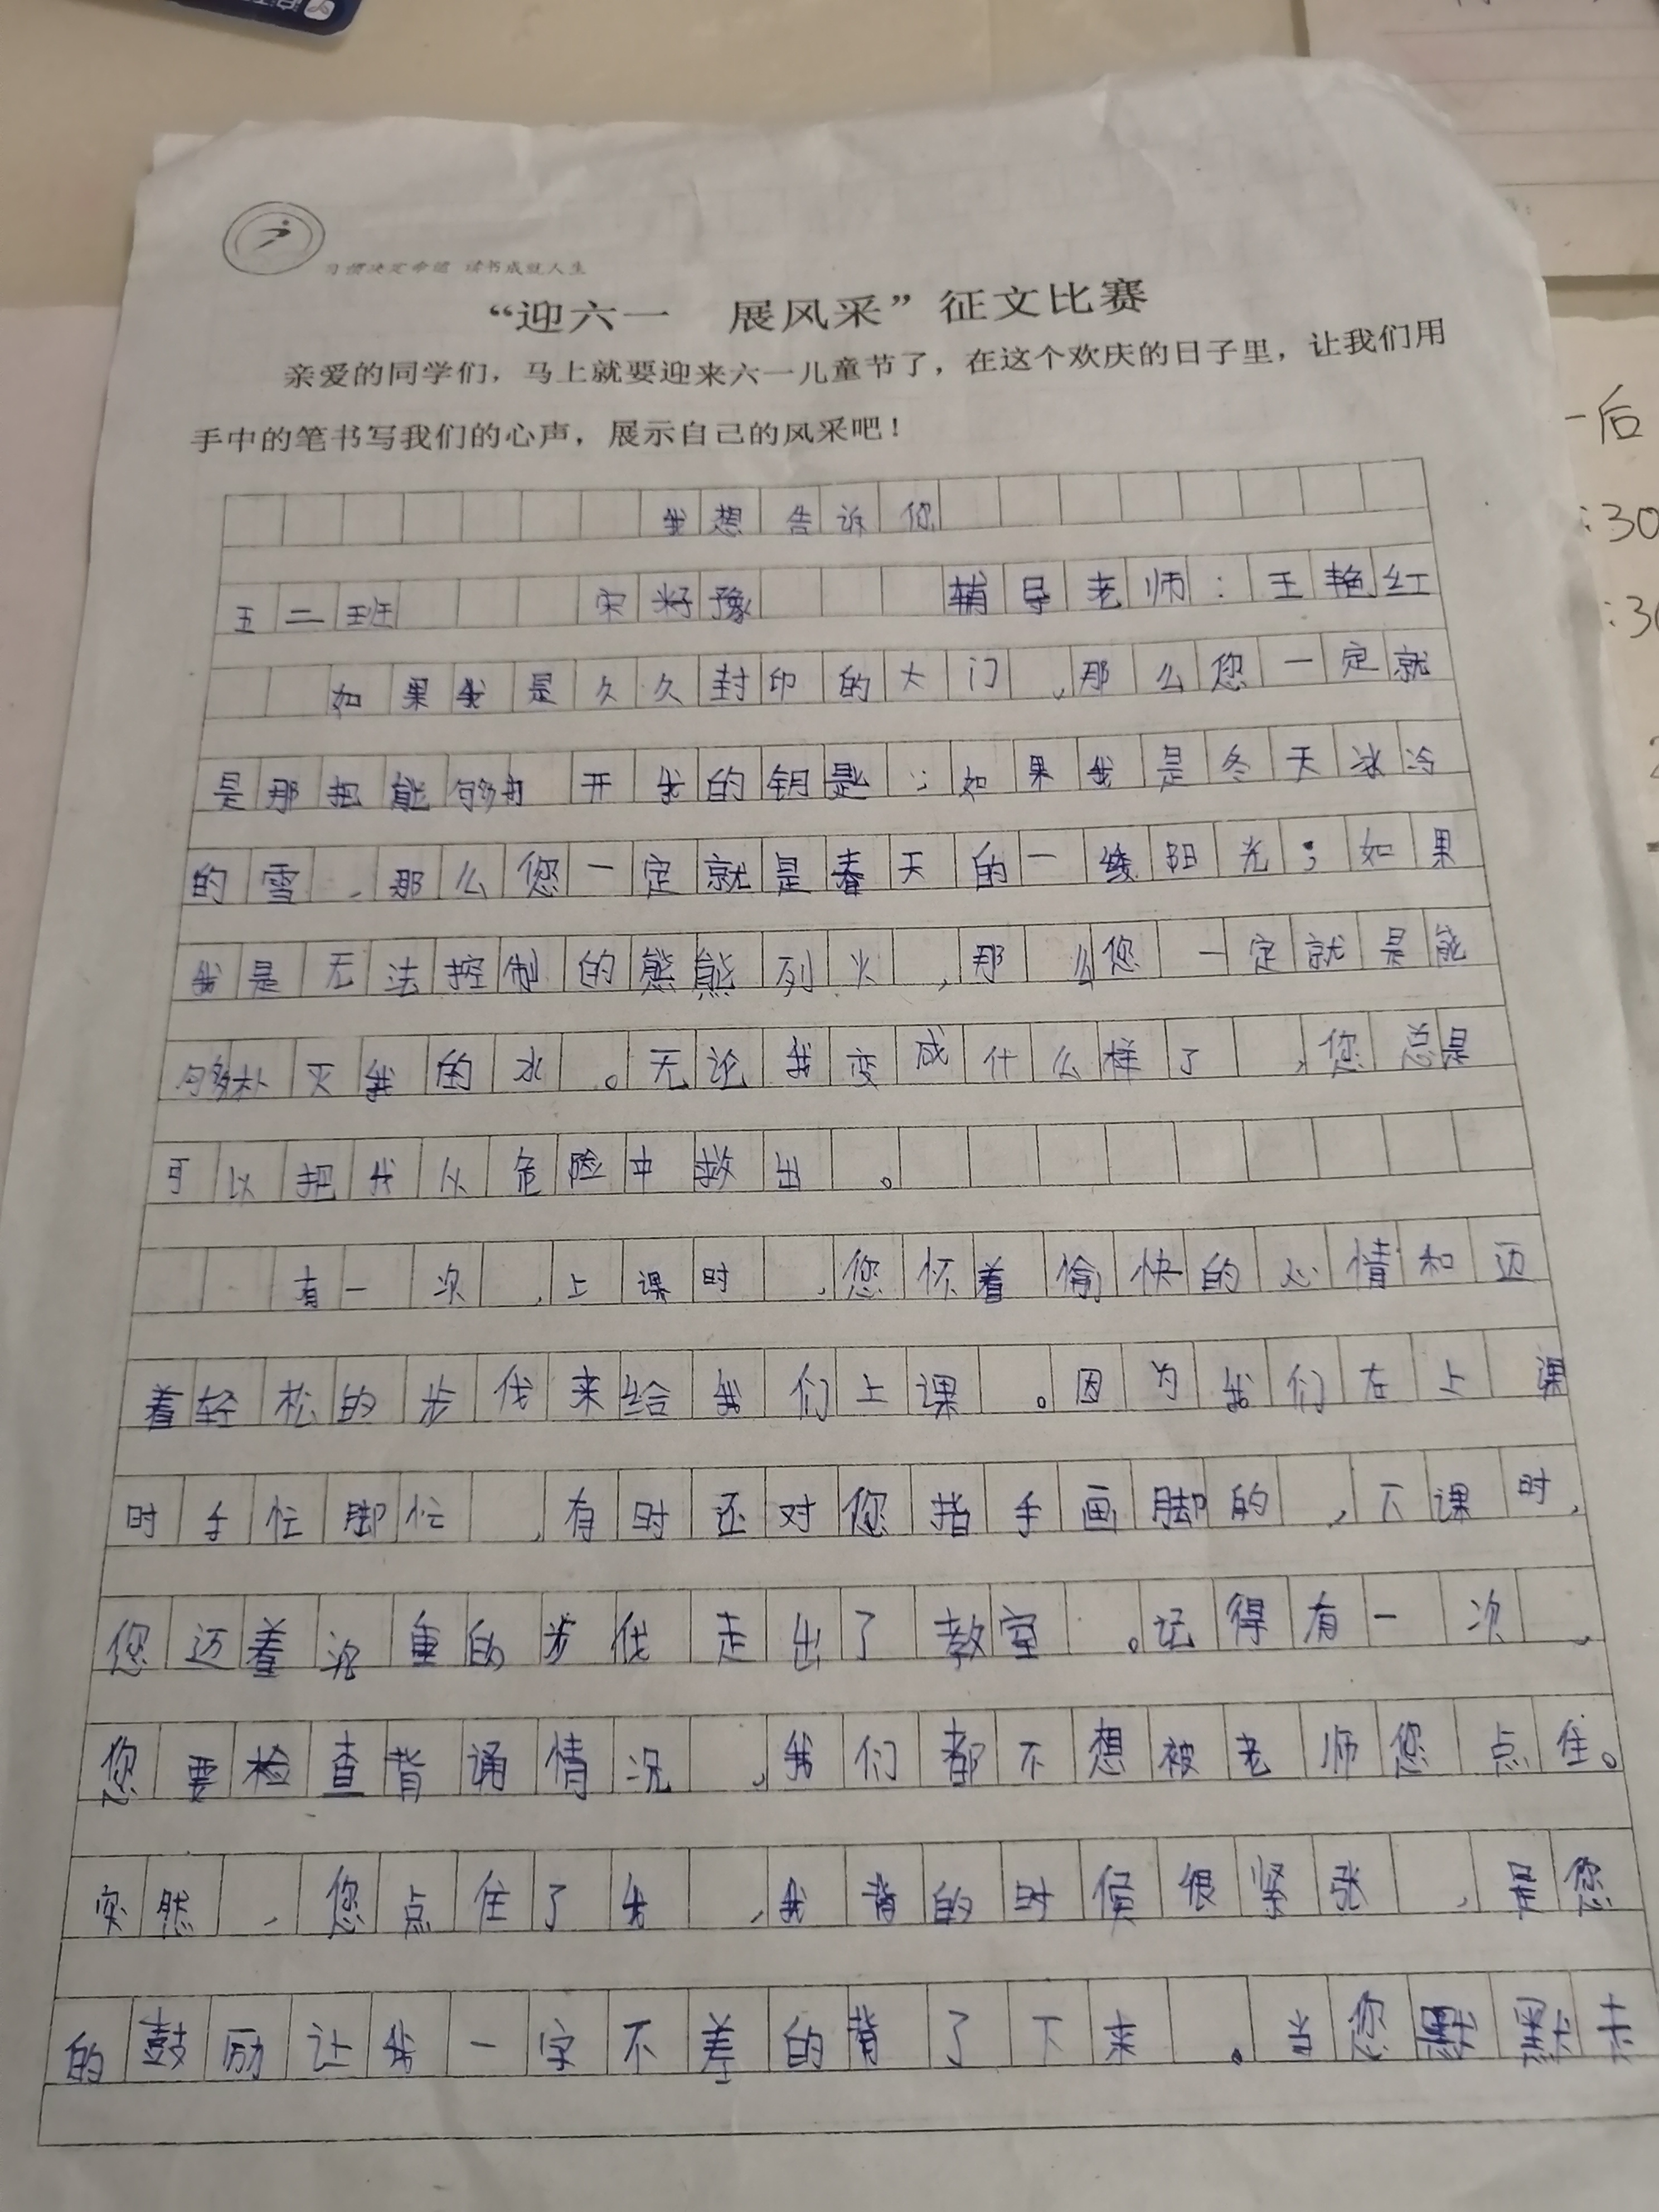 习惯决定命运 读书成就人生
“迎六一 展风采”征文比赛
亲爱的同学们，马上就要迎来六一儿童节了，在这个欢庆的日子里，让我们用
手中的笔书写我们的心声，展示自己的风采吧！
我想告诉您
五二班 宋籽豫 辅导老师：王艳红
如果我是久久封印的大门，那么您一定就
是那把能够 开我的钥匙；如果我是冬天冰冷
的雪，那么您一定就是春天的一缕阳光；如果
我是无法控制的熊熊列火，那么您一定就是能
够朴灭我的水。无论我变成什么样了，您总是
可以把我从危险中救出。
有一次，上课时，您怀着偷快的心情和迈
着轻松的步伐来给我们上课。因为我们在上课
时手忙脚忙，有时还对您指手画脚的，下课时，
您迈着沉重的步伐走出了教室。记得有一次，
您要检查背诵情况，我们都不想被老师您点住。
突然，您点住了我，我背的时候很紧张，是您
的鼓励让我一字不差的背了下来。当您默默
一后
:30